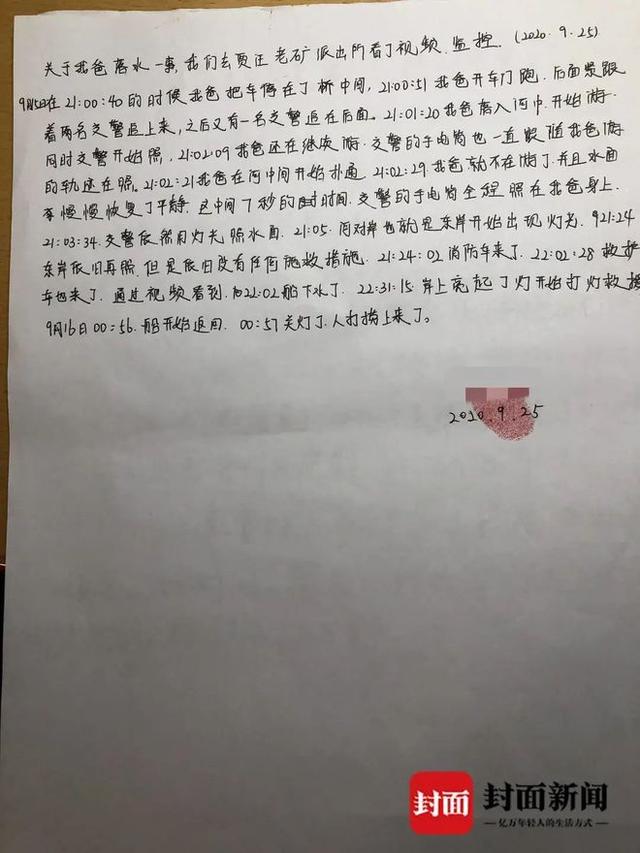 关于我爸落水一事,我们去贾汪老矿派出所看了视频.监控.(2020.9.25)
9月15日在21:00:40的时候我爸把车停在了桥中间,21:00:51我爸开车门跑.后面紧跟
着两名交警追上来,之后又有一名交警追在后面.21:01:20我爸落入河中.开始游.
同时交警开始照.21:02:09我爸还在继续游.交警的手电筒也一直跟随我爸游
的轨迹在照.21:02:21我爸在河中间开始扑通 21:02:29.我爸就不在游了.并且水面
慢慢恢复了平静.这中间7秒的时间.交警的手电筒全程照在我爸身上.
21:03:34.交警依然用灯光照水面.21:05.河对岸也就是东岸开始出现灯光.21:24
东岸依旧再照.但是依旧没有任何施救措施.21:24:02消防车来了.22:02:28救护
车也来了.通过视频看到.22:02船下水了.22:31:15.岸上亮起了灯开始打灯救援
9月16日00:56.船开始返回.00:57关灯了.人打捞上来了。
2020.9.25
封面 封面新闻
亿万年轻人的生活方式